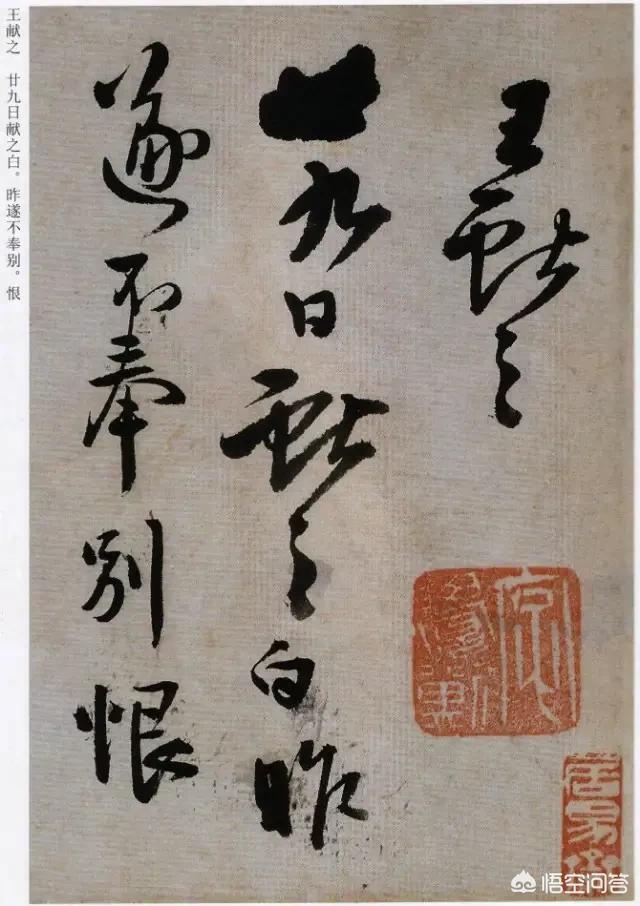 王献之 廿九日献之白。昨遂不奉别。恨
王献之
廿九日献之白昨
遂不奉别恨
悟空问答